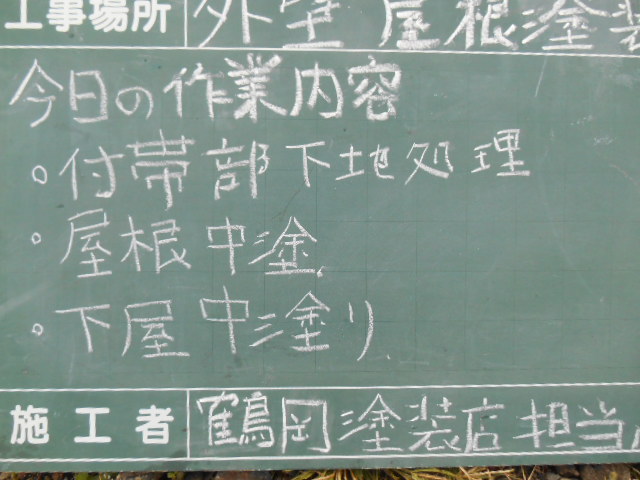 工事場所 外壁 屋根塗装
今日の作業内容
○付帯部下地処理
○屋根中塗
○下屋中塗り
施工者 鶴岡塗装店 担当